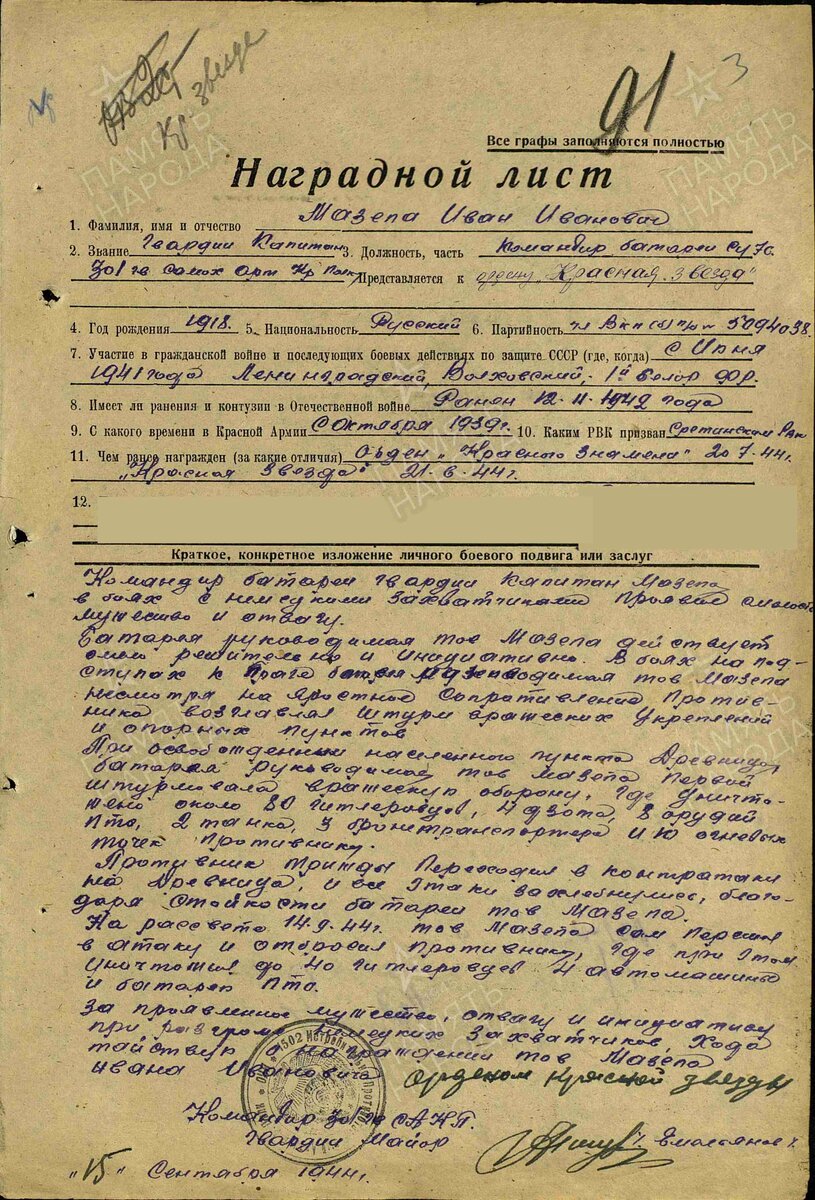 Кр. звезде
91
3
Все графы заполняются полностью
Наградной лист
1. Фамилия, имя и отчество Мазепа Иван Иванович
2. Звание Гвардии Капитан 3. Должность, часть Командир батареи Су 76
301 гв самох арт Кр Полк Представляется к ордену "Красная звезда"
4. Год рождения 1918. 5. Национальность Русский 6. Партийность чл Вкп(б) п/б № 5094038.
7. Участие в гражданской войне и последующих боевых действиях по защите СССР (где, когда) с Июня
1941 года Ленинградский, Волховский, 1й Белор Фр.
8. Имеет ли ранения и контузии в Отечественной войне Ранен 12.11.1942 года
9. С какого времени в Красной Армии с Октября 1939г. 10. Каким РВК призван Сретинском Рвк
11. Чем ранее награжден (за какие отличия) Орден "Красного Знамени" 20.7.44г.
"Красная Звезда" 21.6.44г.
12.
Краткое, конкретное изложение личного боевого подвига или заслуг
Командир батареи гвардии Капитан Мазепа
в боях с немецкими захватчиками проявил смелость
мужество и отвагу.
Батарея руководимая тов Мазепа действует
смело решительно и инициативно. В боях на под-
ступах к Праге батарея руководимая тов Мазепа
несмотря на яростное сопротивление против-
ника возглавлял штурм вражеских укреплений
и опорных пунктов
При освобождении населенного пункта Древница
батарея руководимая тов Мазепа первой
штурмовала вражескую оборону, где уничто-
жено около 80 гитлеровцев, 4 дзота, 8 орудий
Пто, 2 танка, 3 бронетранспортера и 10 огневых
точек противнику.
Противник трижды переходил в контратаки
на Древница, и все атаки захлебнулись, благо-
даря стойкости батареи тов Мазепа.
На рассвете 14.9.44г. тов Мазепа сам перешел
в атаку и отбросил противника, где при этом
уничтожил до 40 гитлеровцев 4 автомашины
и батарею Пто.
За проявленное мужество, отвагу и инициативу
при разгроме немецких захватчиков, Хода
тайствую о награждении тов Мазепа
Ивана Ивановича орденом Красной звезды
Командир 301 гв САКП.
Гвардии Майор
"15" Сентября 1944г.
ПАМЯТЬ НАРОДА